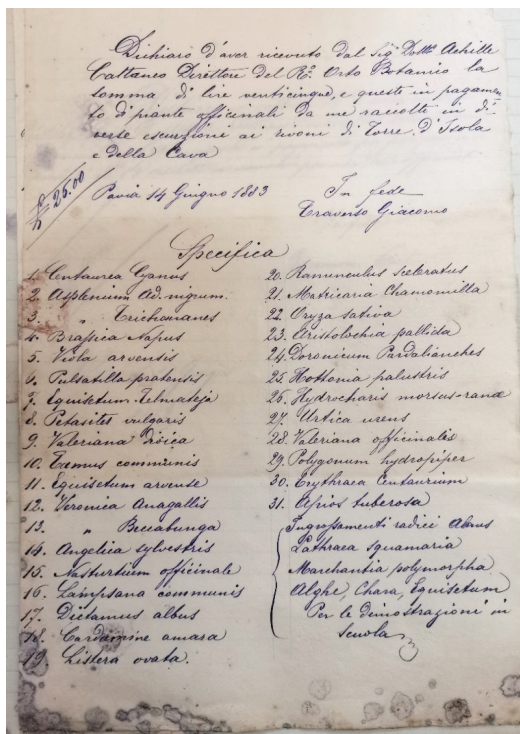 Dichiaro d'aver ricevuto dal Sigr Dottr Achille
Cattaneo Direttore del Ro. Orto Botanico la
somma di lire venticinque, e queste in pagamen
to di piante officinali da me raccolte in di-
verse escurzioni ai rivoni di Torre d'Isola
e della Cava
£ 25.00
Pavia 14 Giugno 1883
In fede
Traverso Giacomo
Specifica
1. Centaurea Cyanus
2. Asplenium Ad. nigrum.
3. " Trichomanes
4. Brassica Napus
5. Viola arvensis
6. Pulsatilla pratensis
7. Equisetum Telmateja
8. Petasites vulgaris
9. Valeriana dioica
10. Tamus communis
11. Equisetum arvense
12. Veronica Anagallis
13. " Beccabunga
14. Angelica sylvestris
15. Nasturtium officinale
16. Lampsana communis
17. Dictamus albus
18. Cardamine amara
19. Listera ovata.
20. Ranunculus sceleratus
21. Matricaria Chamomilla
22. Oryza sativa
23. Aristolochia pallida
24. Doronicum Pardalianches
25. Hottonia palustris
26. Hydrocharis morsus-ranæ
27. Urtica urens
28. Valeriana officinalis
29. Polygonum hydropiper
30. Erythraea Centaurium
31. Apios tuberosa
Ingrossamenti radici Alnus
Lathraea squamaria
Marchantia polymorpha
Alghe, Chara, Equisetum
Per le dimostrazioni in
scuola